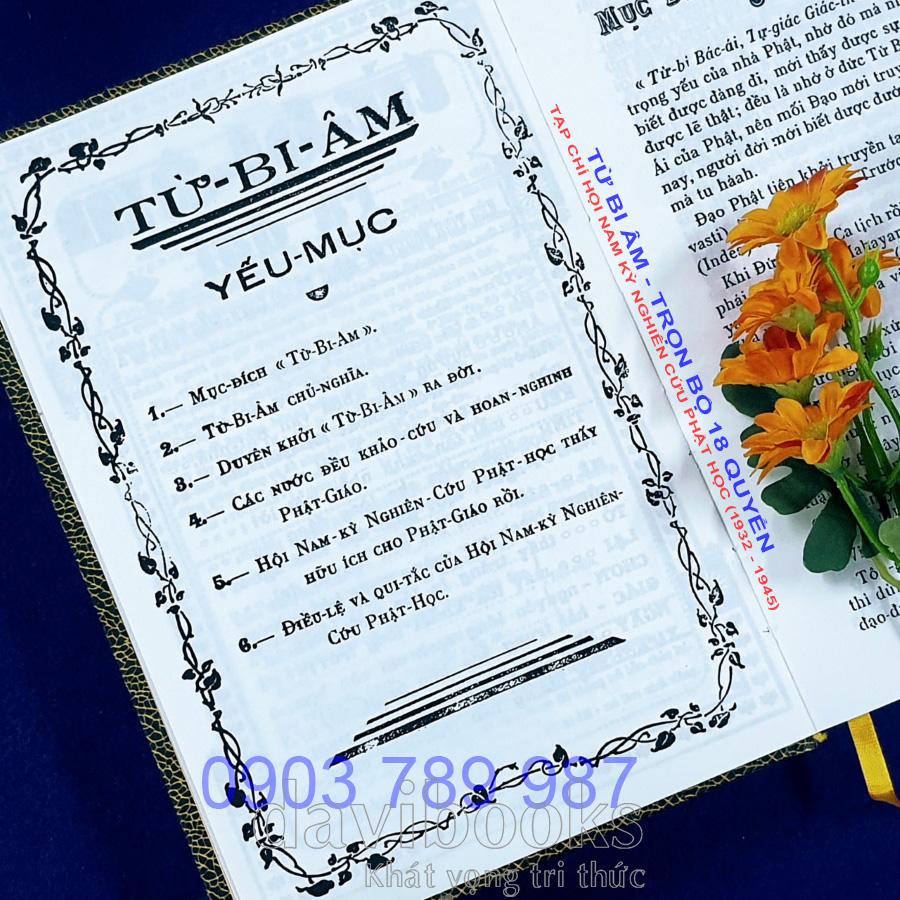 TỪ-BI-ÂM
YẾU-MỤC
1.— MỤC-ĐÍCH « TỪ-BI-ÂM ».
2.— TỪ-BI-ÂM CHỦ-NGHĨA.
3.— DUYÊN KHỞI « TỪ-BI-ÂM » RA ĐỜI.
4.— CÁC NƯỚC ĐỀU KHẢO-CỨU VÀ HOAN-NGHINH
PHẬT-GIÁO.
5.— HỘI NAM-KỲ NGHIÊN-CỨU PHẬT-HỌC THẤY
HỮU ÍCH CHO PHẬT-GIÁO RỒI.
6.— ĐIỀU-LỆ VÀ QUI-TẮC CỦA HỘI NAM-KỲ NGHIÊN-
CỨU PHẬT-HỌC.
« Từ-bi Bác-ái, Tự-giác Giác-
trọng yếu của nhà Phật, nhờ đó mà
biết được đàng đi, mới thấy được sự
được lẽ thật; đều là nhờ ở đức Từ B
Ái của Phật, nên mối Đạo mới truy
nay, người đời mới biết được đườ
mà tu hành.
Đạo Phật tiên khởi truyền tạ
vasti)
(Inde
Ca tịch rồ
Khi Đứ
phải
thì dù
đạo-đ
TỪ BI ÂM - TRỌN BỘ 18 QUYỂN
TẠP CHÍ HỘI NAM KỲ NGHIÊN CỨU PHẬT HỌC (1932 - 1945)
0903 789 987
davibooks
Khát vọng tri thức